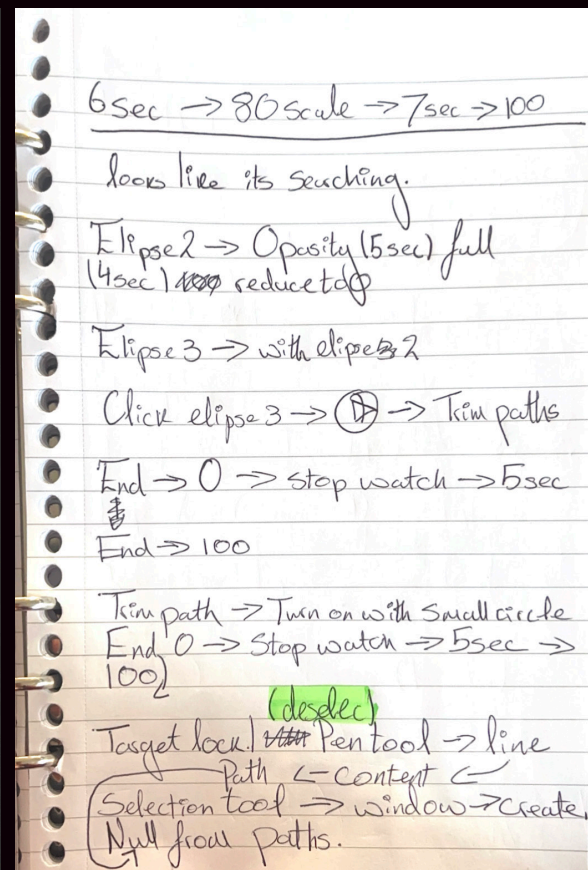 6sec → 80 scale → 7sec → 100
looks like its searching.
Elipse2 → Opasity (5sec) full
(4sec) reduce to 0
Elipse 3 → with elipse 2
Click elipse 3 → → Trim paths
End → 0 → stop watch → 5sec
End → 100
Trim path → Turn on with small circle
End 0 → Stop watch → 5sec →
100)
(deselec)
Target lock! Pen tool → line
Path ← content ←
Selection tool → window → create,
Null from paths.